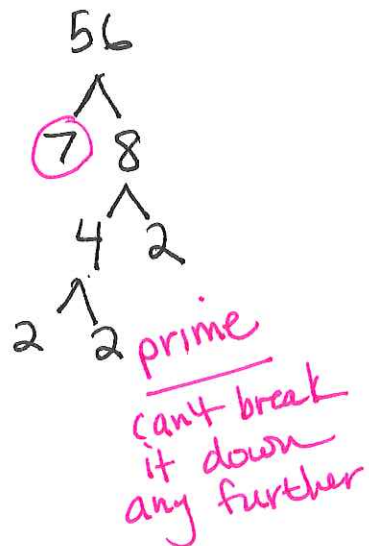 56
7 8
4 2
2 2
prime
can't break
it down
any further